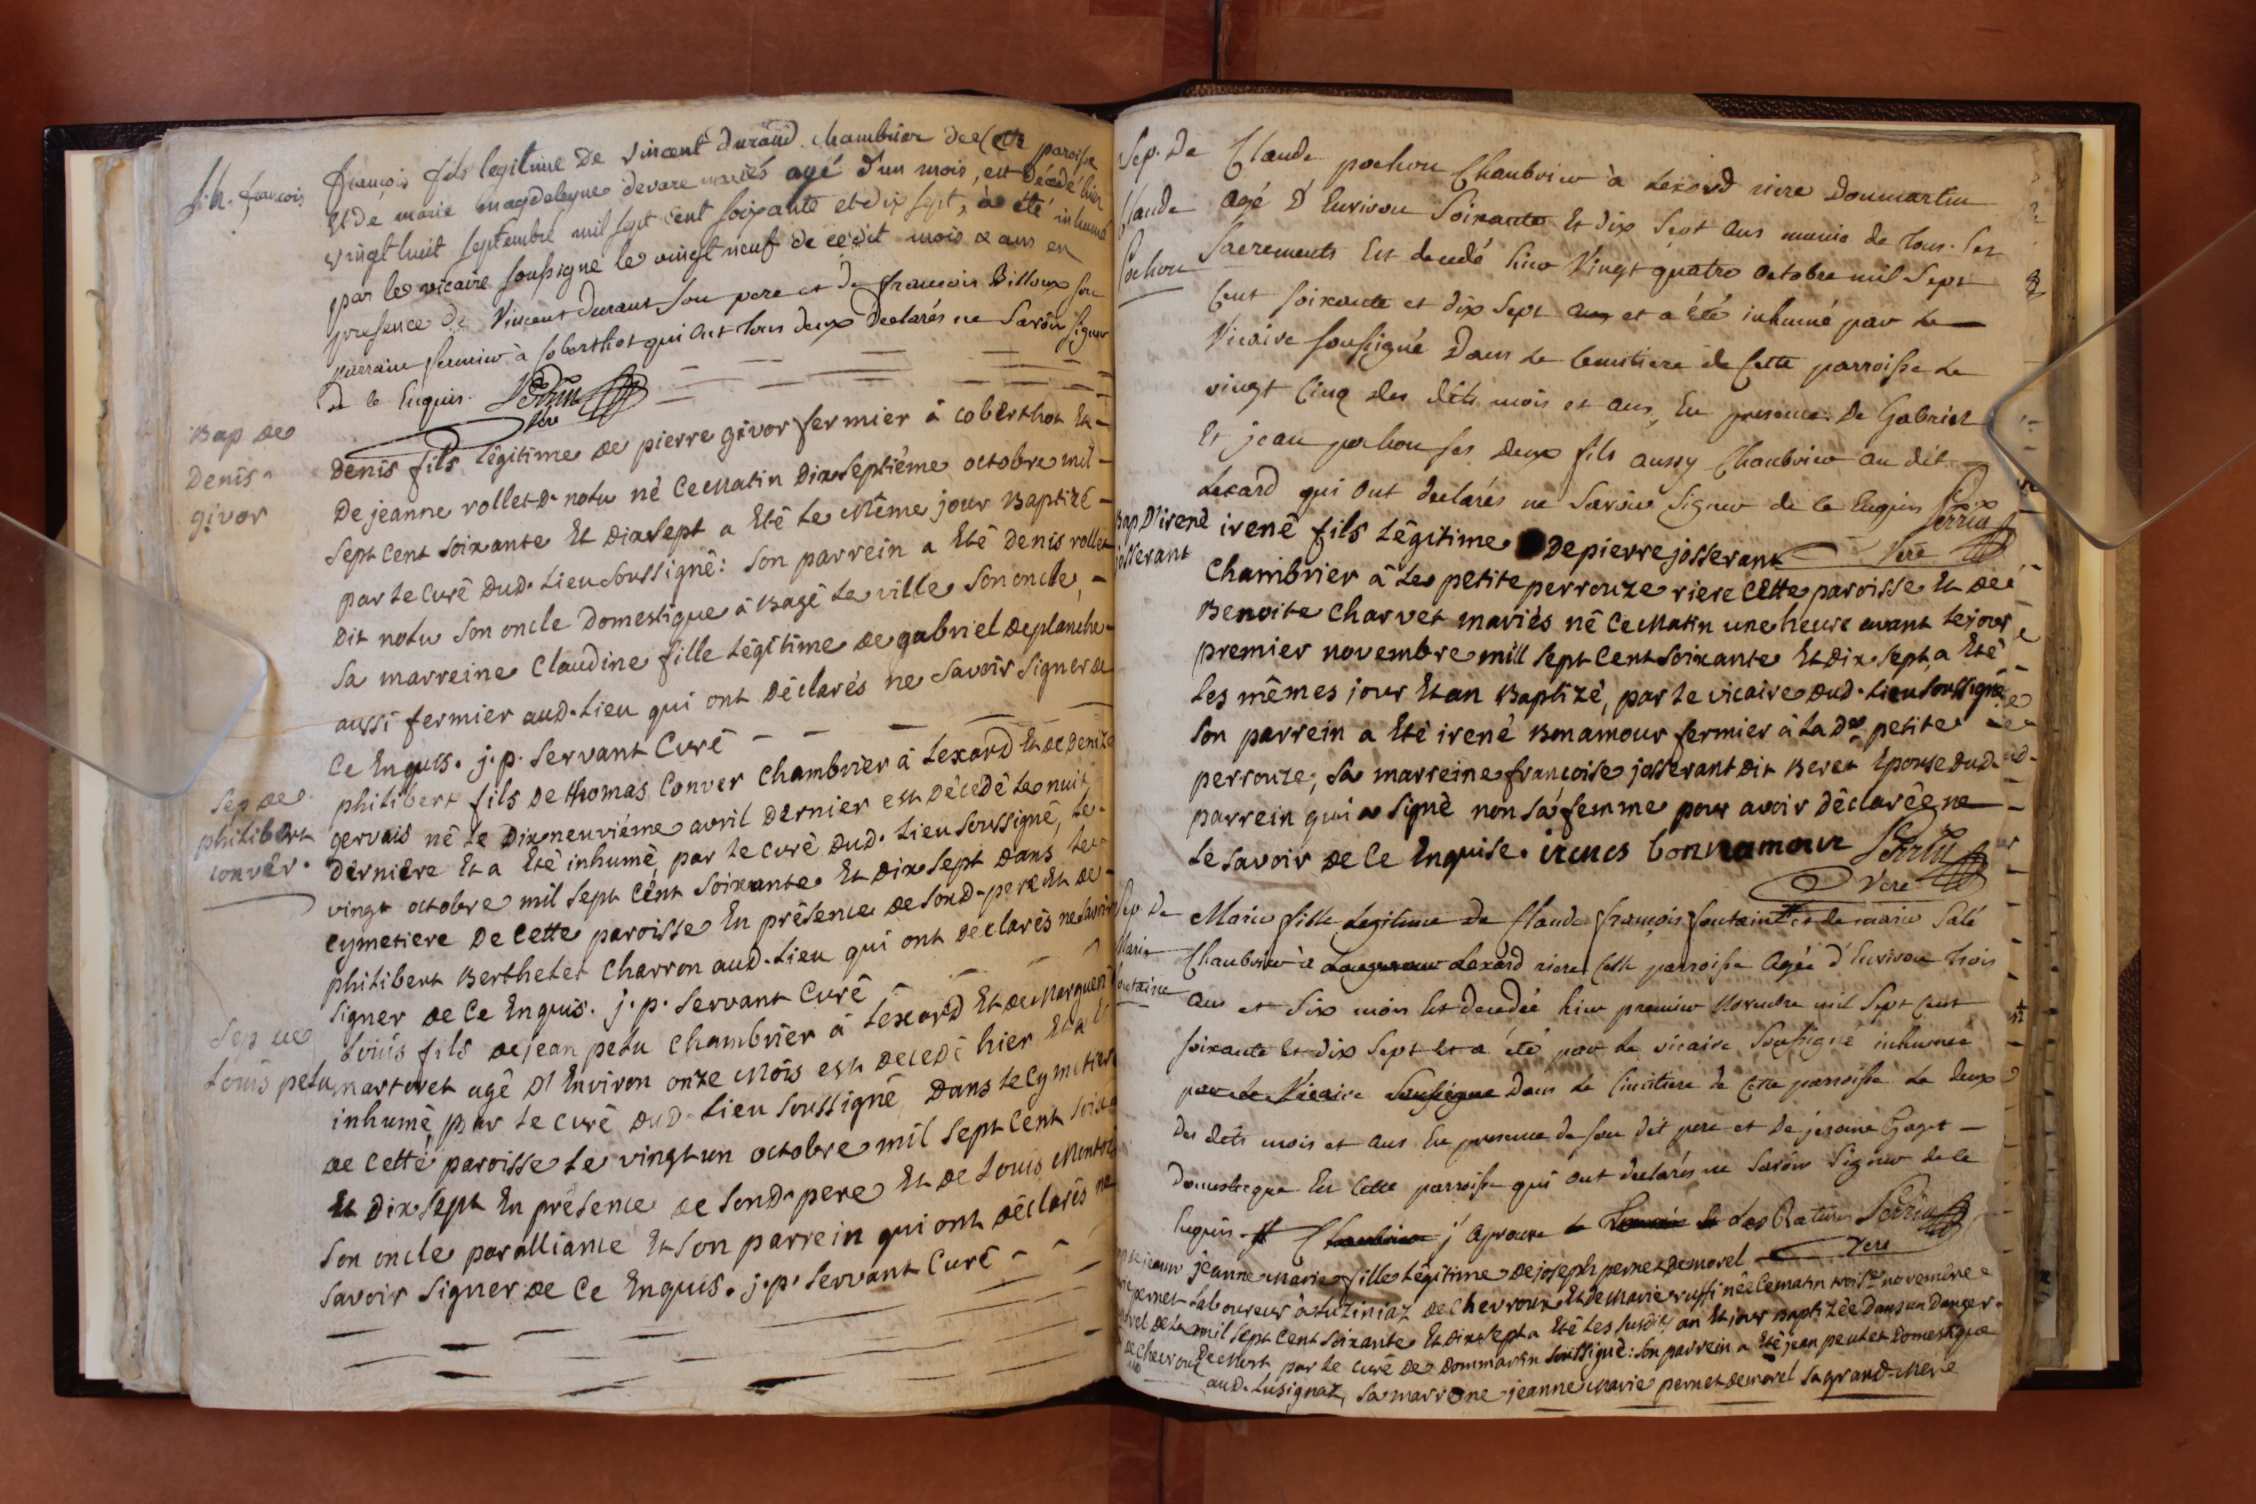 françois fils legitime De Vincent Durand Chambrier de Cette paroisse
Et de marie magdeleyne devare mariés agé d'un mois, est Décédé hier
vingt huit septembre mil sept cent soixante et dix sept, à été inhumé
par le vicaire soussigne le vingt neuf de ce dit mois & ans en
presence de Vincent durant son pere et de francois Billoux son
parrain fermier à Coberthot qui ont tous deux declarés ne Savoir signer
de ce Enquis. Perrin
Vere
Bap de
Denis
givor
Denis fils légitime de pierre givor fermier à coberthot Et
De jeanne rollet Dt notu né ce matin Dixseptième octobre mil
sept cent soixante Et Dixsept a Eté le même jour Baptizé
par le curé Dud. lieu soussigné: son parrein a Eté Denis rollet
Dit notu son oncle Domestique à Bagé le ville son oncle,
sa marreine claudine fille légitime de gabriel deplanche
aussi fermier aud. lieu qui ont Déclarés ne savoir signer de
ce Enquis. j. p. servant Curé
Sep de
philibert
conver.
philibert fils De thomas Conver Chambrier à Lexard Et de Denize
gervais né le Dixneuvième avril dernier est Décédé le nuit
dernière Et a Eté inhumé, par le curé Dud. lieu soussigné, le
vingt octobre mil sept cent soixante Et Dixsept Dans le
cymetiere De Cette paroisse En présence de sond. pere Et de
philibert Berthelet charron aud. lieu qui ont Declarés ne savoir
signer de ce Enquis. j. p. servant Curé
Sep de
Louis petu
Louis fils de jean petu chambrier à Lexard Et de Marguerite
martoret agé D'Environ onze mois est Decedé hier Et a Eté
inhumé, par le curé Dud. lieu soussigné, Dans le cymetiere
de cette paroisse le vingtun octobre mil sept cent soixante
Et Dixsept En présence de sond. pere Et de Louis
son oncle paralliance Et son parrein qui ont Déclarés ne
savoir signer de ce Enquis. j. p. servant Curé
Sep. De
Claude
pochon
Claude pochon Chambrier à Lexard riere Dommartin
agé D'Environ soixante Et dix sept ans munis de tous les
sacrements Est decedé hier Vingt quatre octobre mil sept
Cent soixante et dix sept et a été inhumé par le
Vicaire soussigné Dans le Cemitiere de Cette parroisse le
vingt Cinq des dits mois et ans, En presence De Gabriel
Et jean pochon ses deux fils aussy Chambrier au dit
Lexard qui ont declarés ne Savoir Signer de ce Enquis Perrin
Vere
Bap D'irené
josserant
irené fils légitime De pierre josserant
chambrier à le petite perrouze riere cette paroisse Et De
Benoite Charvet mariés né ce matin une heure avant le jour
premier novembre mill sept cent soixante Et Dix sept, a Eté
les mêmes jour Et an Baptizé, par le vicaire Dud. lieu soussigné
son parrein a Eté irené Bonamour fermier à la De petite
perrouze, sa marreine françoise josserant Dit Beret Epouse Dud.
parrein qui a signé non sa femme pour avoir déclarée ne
le savoir de ce Enquise. irenes bonnamour Perrin
Vere
Sep. De
Marie
fontaine
Marie fille Legitime De Claude françois fontaine et de marie Salé
Chambrier à Lexard riere Cette parroisse Agée d'Environ trois
ans et Six mois Est decedée hier premier Novembre mil Sept Cent
soixante Et dix Sept et a été par le vicaire Soussigné inhumée
par le Vicaire Soussigné Dans le Cimitiere de Cette parroisse le deux
des dits mois et ans En presence de son dit pere et de jeraime Gaget
Domestique En Cette parroisse qui ont declarés ne Savoir Signer de ce
Enquis. j'aprouve les Ratures Perrin
Vere
jeanne Marie fille légitime De joseph pernet Demorel
laboureur à Luziniaz de Chevroux Et de Marie ruffi née ce matin troise novembre
mil sept cent soixante Et Dixsept a Eté les susdits an Et jour Baptizée Dans un Danger
De Mort par le curé De Dommartin soussigné: son parrein a Eté jean peulet Domestique
aud. Lusignaz, sa marrene jeanne Marie pernet demorel sa grand-mere